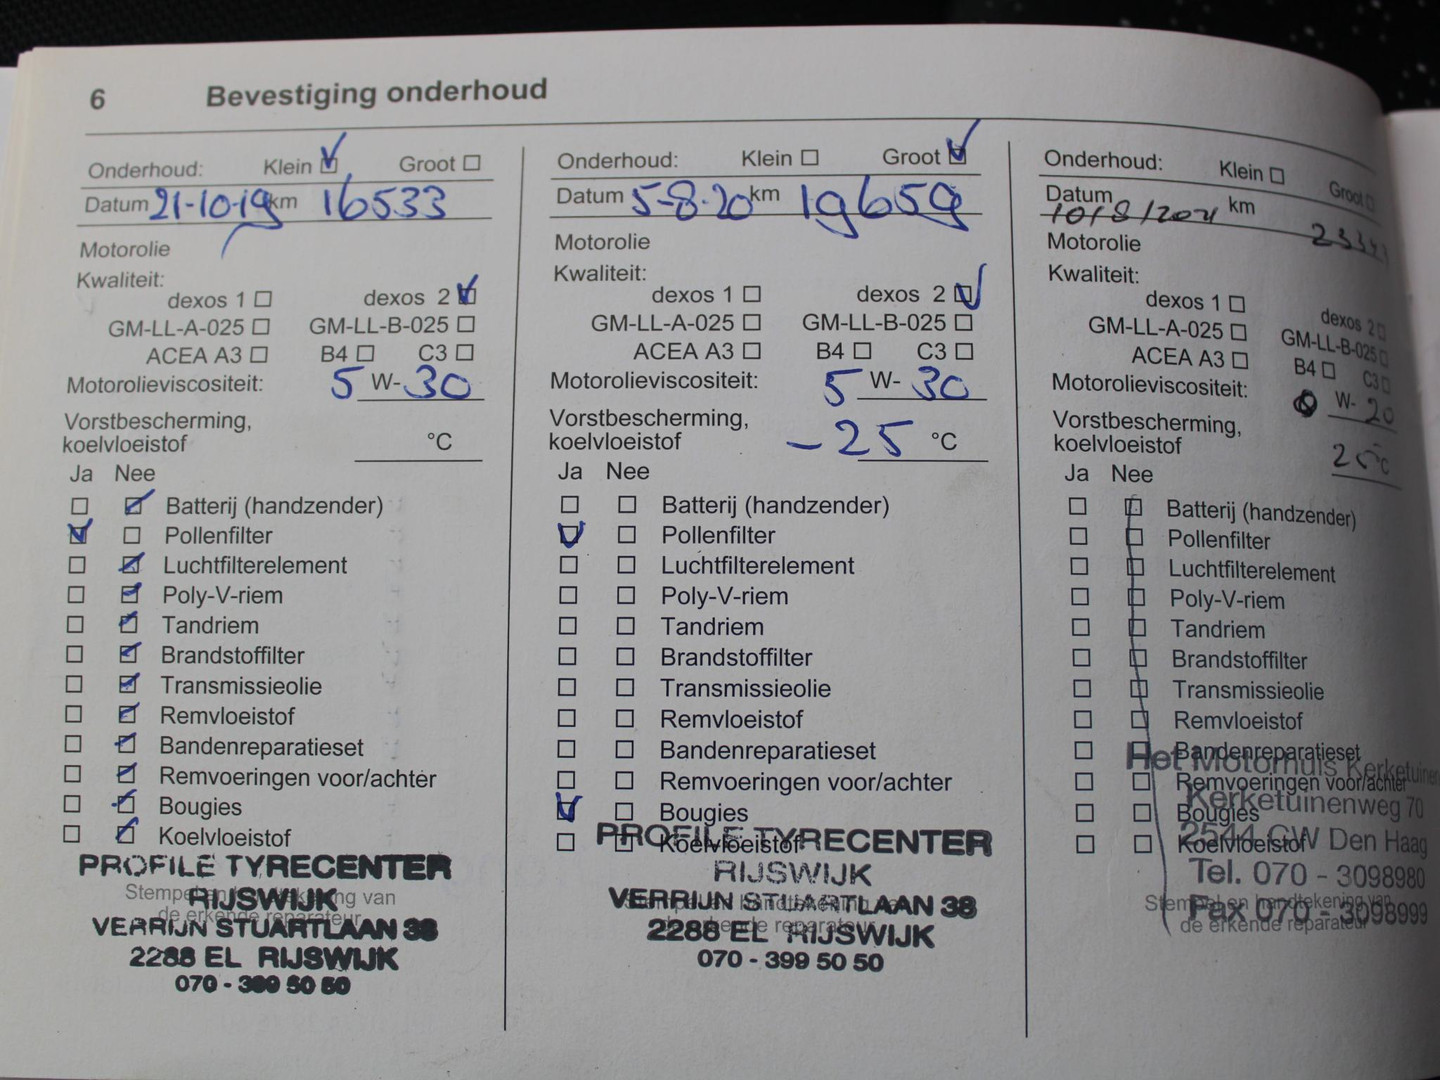 6 Bevestiging onderhoud
Onderhoud: Klein Groot
Datum 21-10-19 km 16533
Motorolie
Kwaliteit:
dexos 1 dexos 2
GM-LL-A-025 GM-LL-B-025
ACEA A3 B4 C3
Motorolieviscositeit: 5 W- 30
Vorstbescherming,
koelvloeistof °C
Ja Nee
Batterij (handzender)
Pollenfilter
Luchtfilterelement
Poly-V-riem
Tandriem
Brandstoffilter
Transmissieolie
Remvloeistof
Bandenreparatieset
Remvoeringen voor/achter
Bougies
Koelvloeistof
PROFILE TYRECENTER
Stempel en handtekening van
RIJSWIJK
de erkende reparateur
VERRIJN STUARTLAAN 38
2288 EL RIJSWIJK
070 - 399 50 50
Onderhoud: Klein Groot
Datum 5-8-20 km 19659
Motorolie
Kwaliteit:
dexos 1 dexos 2
GM-LL-A-025 GM-LL-B-025
ACEA A3 B4 C3
Motorolieviscositeit: 5 W- 30
Vorstbescherming,
koelvloeistof -25 °C
Ja Nee
Batterij (handzender)
Pollenfilter
Luchtfilterelement
Poly-V-riem
Tandriem
Brandstoffilter
Transmissieolie
Remvloeistof
Bandenreparatieset
Remvoeringen voor/achter
Bougies
Koelvloeistof
PROFILE TYRECENTER
RIJSWIJK
Stempel en handtekening van
VERRIJN STUARTLAAN 38
de erkende reparateur
2288 EL RIJSWIJK
070 - 399 50 50
Onderhoud: Klein Groot
Datum km
Motorolie
Kwaliteit:
dexos 1 dexos 2
GM-LL-A-025 GM-LL-B-025
ACEA A3 B4 C3
Motorolieviscositeit: 0 W- 20
Vorstbescherming,
koelvloeistof 25 °C
Ja Nee
Batterij (handzender)
Pollenfilter
Luchtfilterelement
Poly-V-riem
Tandriem
Brandstoffilter
Transmissieolie
Remvloeistof
Bandenreparatieset
Het Motorhuis Kerketuinen
Remvoeringen voor/achter
Kerketuinenweg 70
Bougies
2544 CW Den Haag
Koelvloeistof
Tel. 070 - 3098980
Stempel en handtekening van
Fax 070 - 3098999
de erkende reparateur